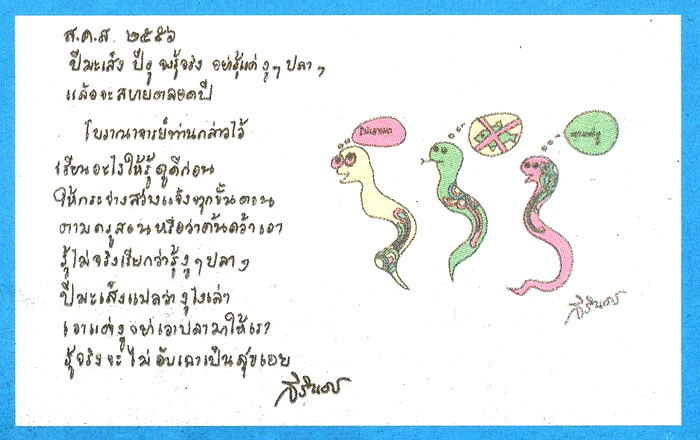 ส.ค.ส. ๒๕๕๖
ปีมะเส็ง ปีงู จงรู้จริง อย่ารู้แค่ งูๆ ปลาๆ
แล้วจะสบายตลอดปี
โบราณาจารย์ท่านกล่าวไว้
เรียนอะไรให้รู้ดูดีก่อน
ให้กระจ่างสว่างแจ้งทุกขั้นตอน
ตามครูสอนหรือว่าค้นคว้าเอา
รู้ไม่จริงเรียกว่ารู้งูๆปลาๆ
ปีมะเส็งแปลว่างูไงเล่า
เอาแต่งูอย่าเอาปลามาให้เรา
รู้จริงจะไม่อับเฉาเป็นสุขเอย
สิรินธร
สิรินธร